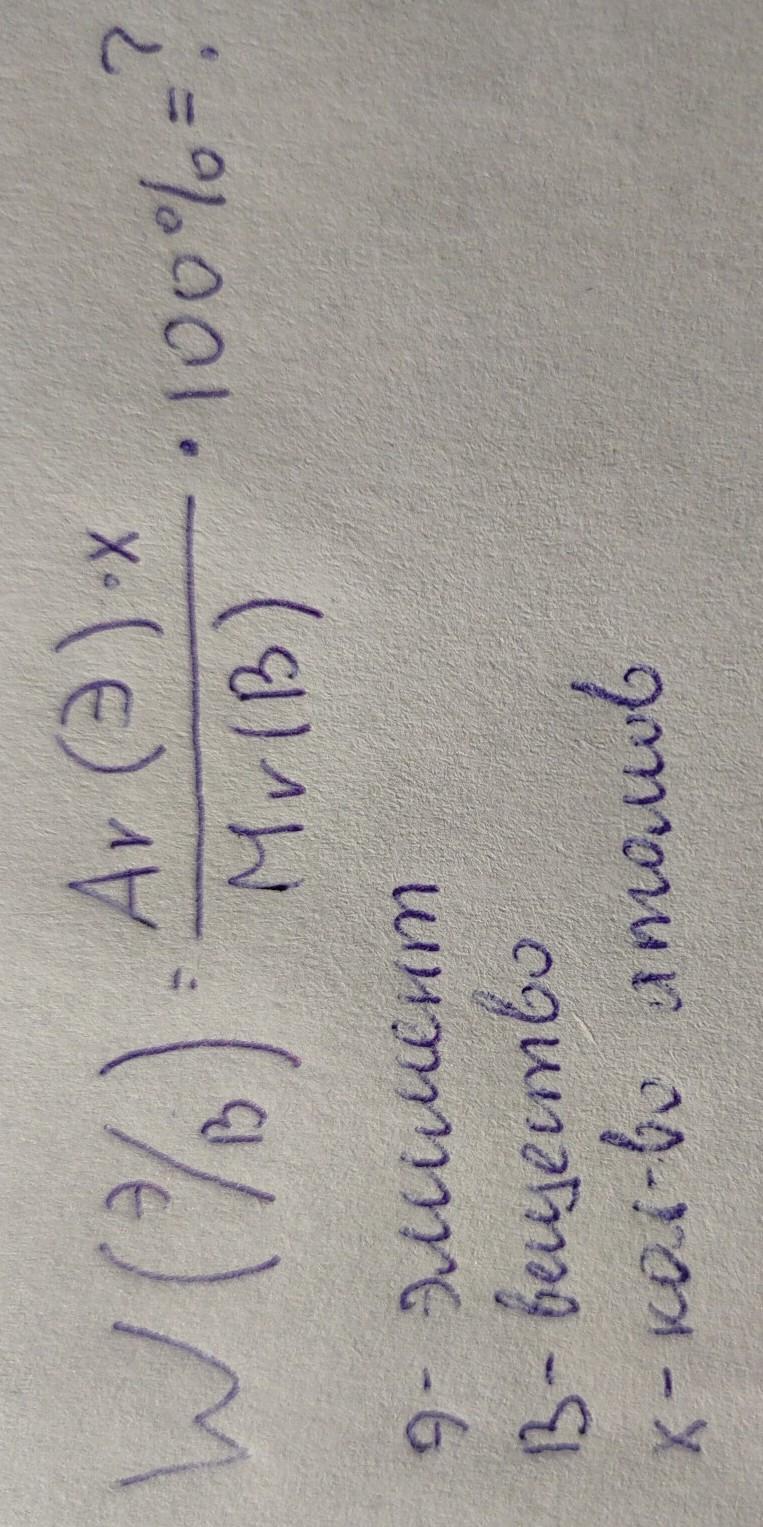 W (Э/В) = Ar (Э) · x / Mr (В) · 100% = ?
Э - элимент
В - вещество
x - кол-во атомов